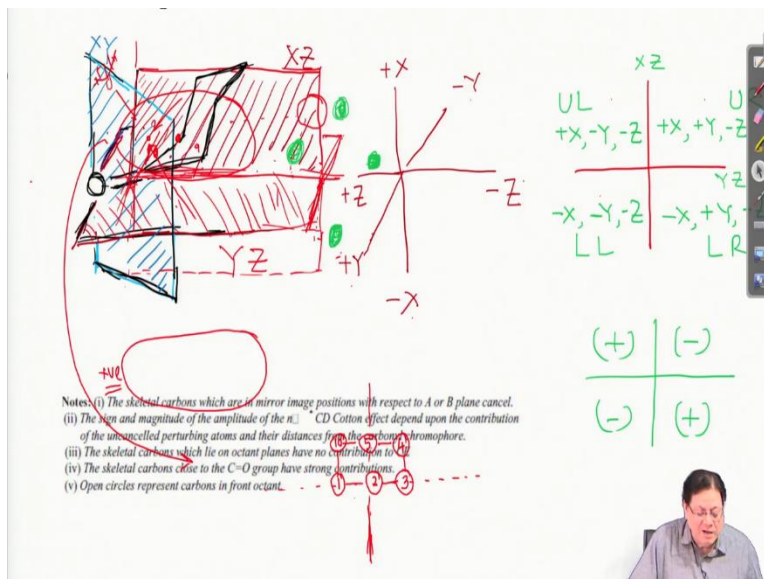 XY
XZ
+X
-Y
+Z
-Z
+Y
-X
YZ
XZ
UL
U
+X, -Y, -Z
+X, +Y, -Z
YZ
-X, -Y, -Z
-X, +Y,
LL
LR
(+) (-)
(-) (+)
+ve
Notes: (i) The skeletal carbons which are in mirror image positions with respect to A or B plane cancel.
(ii) The sign and magnitude of the amplitude of the n□ * CD Cotton effect depend upon the contribution
of the uncancelled perturbing atoms and their distances from the carbonyl chromophore.
(iii) The skeletal carbons which lie on octant planes have no contribution to
(iv) The skeletal carbons close to the C=O group have strong contributions.
(v) Open circles represent carbons in front octant.
10 5 4
1 2 3